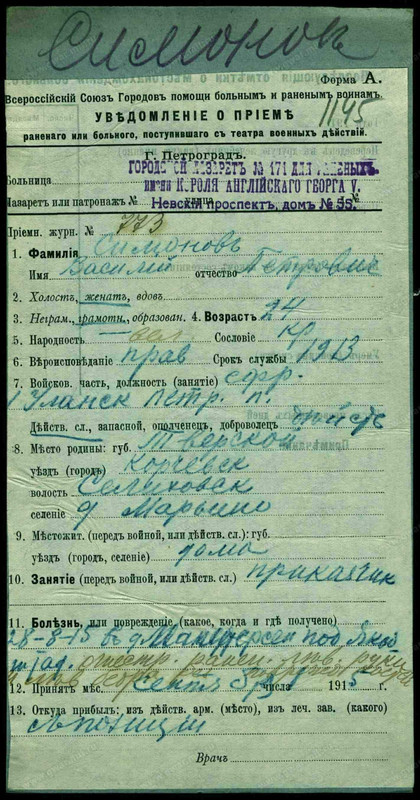 Симонов
Форма А.
Всероссійскій Союзъ Городовъ помощи больнымъ и раненымъ воинамъ.
1145
УВѢДОМЛЕНІЕ О ПРІЕМѢ
раненаго или больного, поступившаго съ театра военныхъ дѣйствій.
Г. Петроградъ.
Больница ГОРОДСКОЙ ЛАЗАРЕТЪ № 171 ДЛЯ РАНЕНЫХЪ
имени КОРОЛЯ АНГЛІЙСКАГО ГЕОРГА V.
Лазаретъ или патронажъ № улица
Невскій проспектъ, домъ № 55.
Пріемн. журн. № 773
1. Фамилія Симоновъ
Имя Василій отчество Петровичъ
2. Холостъ, женатъ, вдовъ.
3. Неграм., грамотн., образован. 4. Возрастъ 24
5. Народность вел Сословіе кр
6. Вѣроисповѣданіе прав Срокъ службы 1913
7. Войсков. часть, должность (занятіе) ефр.
1 Уланск Петр. п.
Дѣйств. сл., запасной, ополченецъ, доброволецъ дѣйств
8. Мѣсто родины: губ. Тверской
уѣздъ (городъ) Корчевск
волость Селиховск
селеніе д Марьино
9. Мѣстожит. (передъ войной, или дѣйств. сл.): губ.
уѣздъ (городъ, селеніе) дома
10. Занятіе (передъ войной, или дѣйств. сл.) приказчик
11. Болѣзнь, или поврежденіе (какое, когда и гдѣ получено)
28-8-15 въ д под
12. Принятъ мѣс. Сентя числа 3 1915 г.
13. Откуда прибылъ: изъ дѣйств. арм. (мѣсто), изъ леч. зав. (какого)
съ позиции
Врачъ